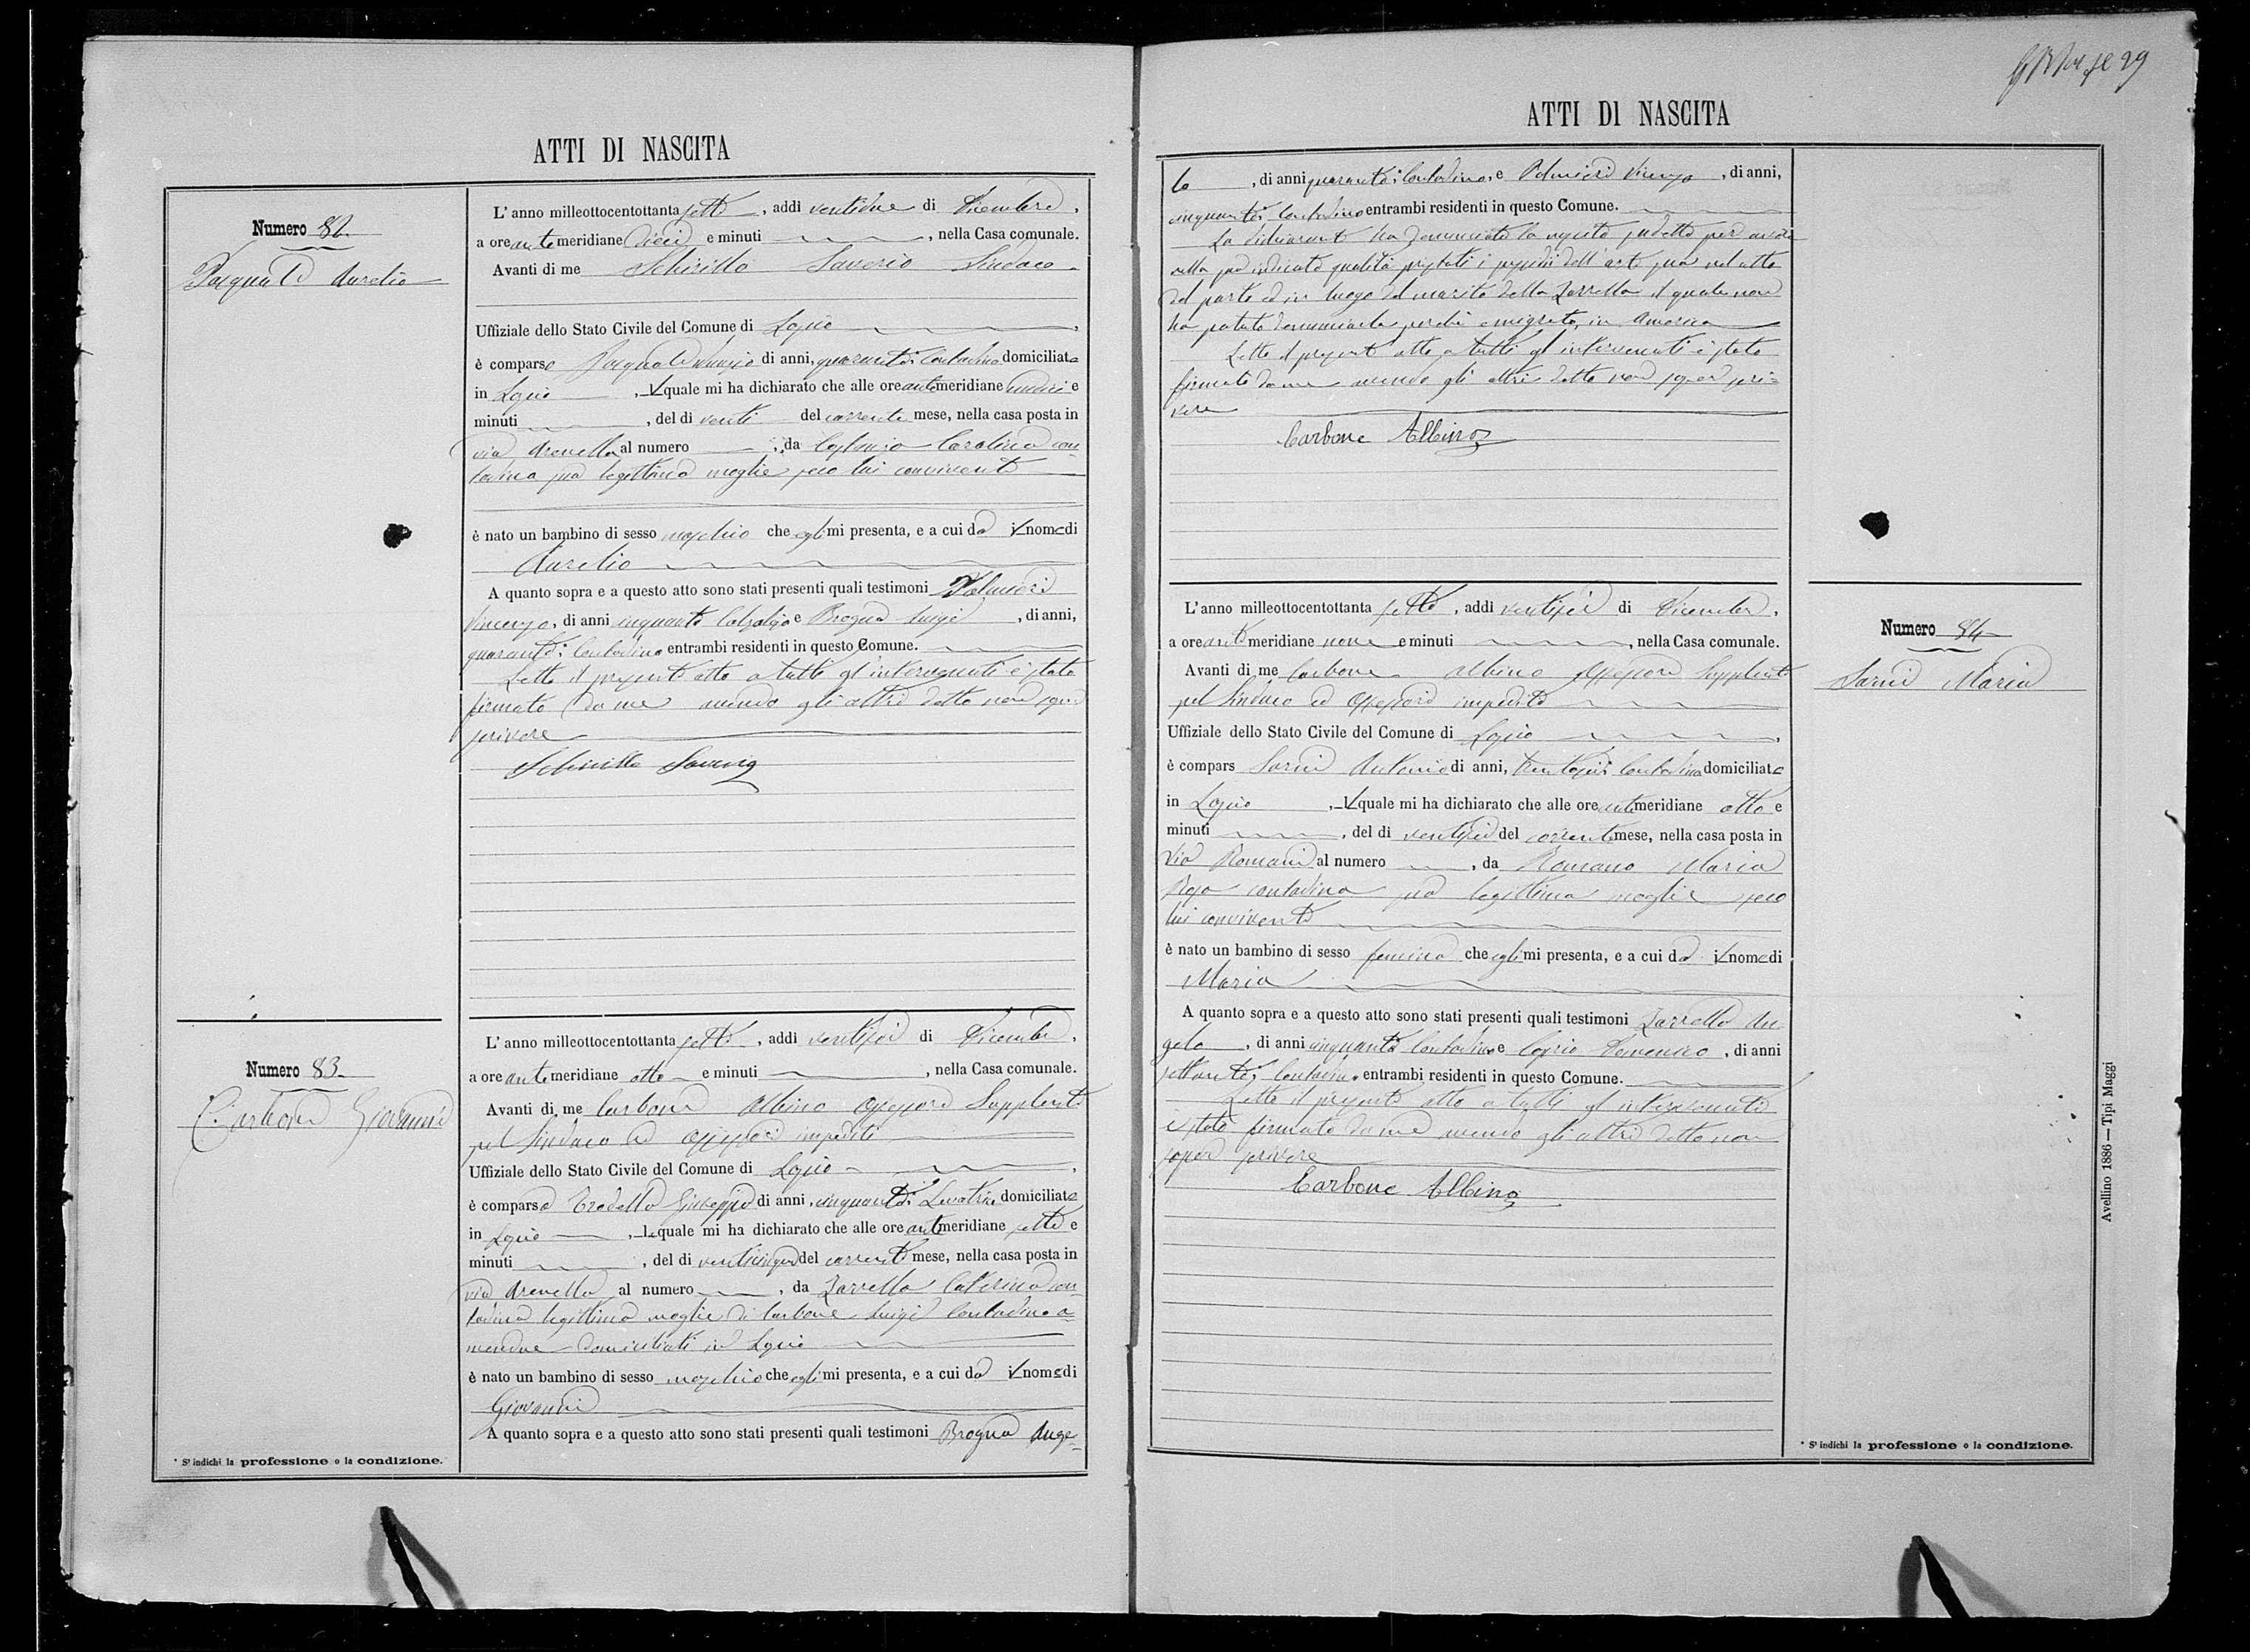 29
ATTI DI NASCITA
Numero 82
Pasquale Aurelio
L'anno milleottocentottanta sette, addì ventidue di Dicembre,
a ore ante meridiane dieci e minuti, nella Casa comunale.
Avanti di me Schirillo Saverio Sindaco
Uffiziale dello Stato Civile del Comune di Lapio,
è comparso Pasquale di anni, quaranta; contadino domiciliato
in Lapio, il quale mi ha dichiarato che alle ore antemeridiane undici e
minuti, del dì venti del corrente mese, nella casa posta in
via Arenella al numero, da Carolina con-
tadina sua legittima moglie seco lui convivente
è nato un bambino di sesso maschio che egli mi presenta, e a cui dà il nome di
Aurelio
A quanto sopra e a questo atto sono stati presenti quali testimoni Palmieri
Vincenzo, di anni cinquanta Calzolajo e Brogna Luigi, di anni,
quaranta; Contadino entrambi residenti in questo Comune.
Letto il presente atto a tutti gl'intervenuti è stato
firmato da me avendo gli altri detto non saper
scrivere
Schirillo Saverio
Numero 83
Carbone Giovanni
L'anno milleottocentottanta sette, addì ventisei di Dicembre,
a ore antemeridiane otto e minuti, nella Casa comunale.
Avanti di me Carbone Albino Assessore Supplente
pel Sindaco ed Assessori impediti
Uffiziale dello Stato Civile del Comune di Lapio,
è comparsa Giuseppa di anni, cinquanta; Levatrice domiciliata
in Lapio, la quale mi ha dichiarato che alle ore antemeridiane sette e
minuti, del dì venticinque del corrente mese, nella casa posta in
via Arenella al numero, da Zarrella Caterina con-
tadina legittima moglie di Carbone Luigi Contadino a-
mendue domiciliati in Lapio
è nato un bambino di sesso maschio che egli mi presenta, e a cui dà il nome di
Giovanni
A quanto sopra e a questo atto sono stati presenti quali testimoni Brogna Ange-
* S'indichi la professione o la condizione.
ATTI DI NASCITA
lo, di anni quaranta; Contadino, e Palmieri Vincenzo, di anni,
cinquanta; Contadino entrambi residenti in questo Comune.
La dichiarante ha denunciato la nascita suddetta per avere
nella sua indicata qualità prestati i dell'arte sua nell'atto
del parto ed in luogo del marito della Zarrella il quale non
ha potuto denunciarla perchè emigrato in America
Letto il presente atto a tutti gl'intervenuti è stato
firmato da me avendo gli altri detto non saper scri-
vere
Carbone Albino
Numero 84
Sarni Maria
L'anno milleottocentottanta sette, addì ventisei di Dicembre,
a ore antemeridiane nove e minuti, nella Casa comunale.
Avanti di me Carbone Albino Assessore Supplente
pel Sindaco ed Assessori impediti
Uffiziale dello Stato Civile del Comune di Lapio,
è compars Sarni Antonio di anni, trentasei; Contadino domiciliato
in Lapio, il quale mi ha dichiarato che alle ore antemeridiane otto e
minuti, del dì ventisei del corrente mese, nella casa posta in
Via Romani al numero, da Romano Maria
Rosa contadina sua legittima moglie seco
lui convivente
è nato un bambino di sesso femina che egli mi presenta, e a cui dà il nome di
Maria
A quanto sopra e a questo atto sono stati presenti quali testimoni Zarrella An-
gelo, di anni cinquanta Contadino e Domenico, di anni
settanta; Contadino entrambi residenti in questo Comune.
Letto il presente atto a tutti gl'intervenuti
è stato firmato da me avendo gli altri detto non
saper scrivere
Carbone Albino
* S'indichi la professione o la condizione.
Avellino 1886 — Tipi Maggi